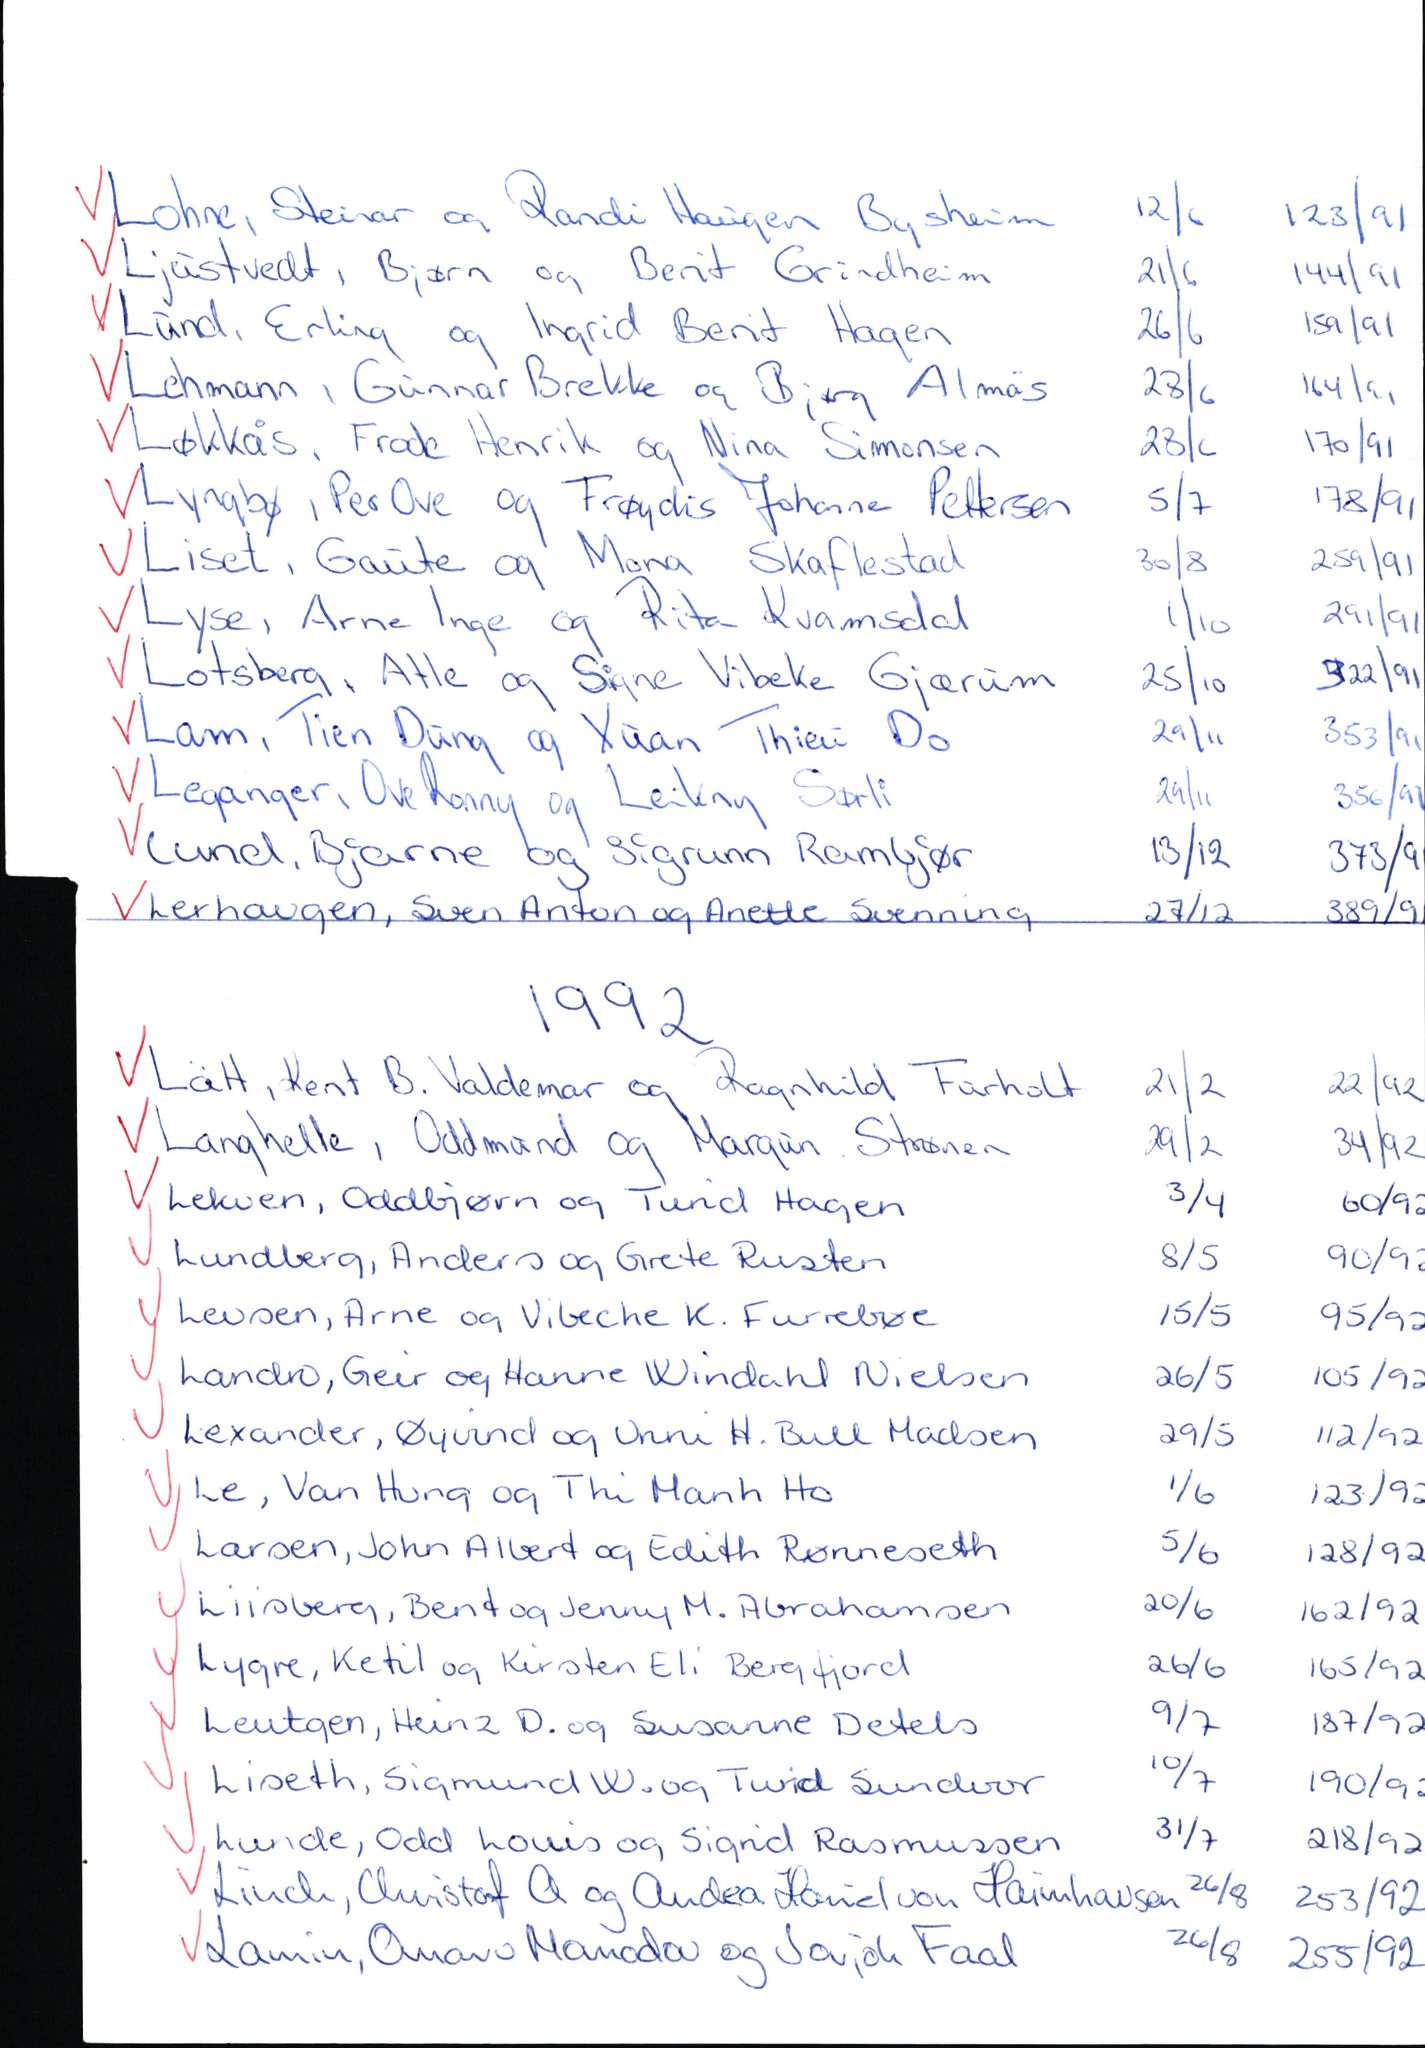 Lohne, Steinar og Randi Haugen Bysheim 12/6 123/91
Ljustvedt, Bjørn og Berit Grindheim 21/6 144/91
Lund, Erling og Ingrid Berit Hagen 26/6 159/91
Lehmann, Gunnar Brekke og Bjørg Almås 28/6 164/91
Løkkås, Frode Henrik og Nina Simonsen 28/6 170/91
Lyngbø, Per Ove og Frøydis Johanne Pettersen 5/7 178/91
Liset, Gaute og Mona Skaflestad 30/8 259/91
Lyse, Arne Inge og Rita Kvamsdal 1/10 291/91
Lotsberg, Atle og Signe Vibeke Gjærum 25/10 322/91
Lam, Tien Dung og Xuan Thieu Do 29/11 353/91
Leganger, Ove Ronny og Leikny Sørli 29/11 356/91
Lund, Bjarne og Sigrunn Rambjør 13/12 373/91
Lerhaugen, Sven Anton og Anette Svenning 27/12 389/91
1992
Lätt, Kent B. Valdemar og Ragnhild Farholt 21/2 22/92
Langhelle, Oddmund og Margun Strønen 29/2 34/92
Lekven, Oddbjørn og Turid Hagen 3/4 60/92
Lundberg, Anders og Grete Rusten 8/5 90/92
Levsen, Arne og Vibeche K. Furrebøe 15/5 95/92
Landro, Geir og Hanne Windahl Nielsen 26/5 105/92
Lexander, Øyvind og Unni H. Bull Madsen 29/5 112/92
Le, Van Hung og Thi Manh Ho 1/6 123/92
Larsen, John Albert og Edith Rønneseth 5/6 128/92
Liisberg, Bent og Jenny M. Abrahamsen 20/6 162/92
Lygre, Ketil og Kirsten Eli Bergfjord 26/6 165/92
Leutgen, Heinz D. og Susanne Detels 9/7 187/92
Liseth, Sigmund W. og Turid Sundvor 10/7 190/92
Lunde, Odd Louis og Sigrid Rasmussen 31/7 218/92
Christof A og Andrea von Haimhausen 26/8 253/92
Lamin, og Faal 26/8 255/92